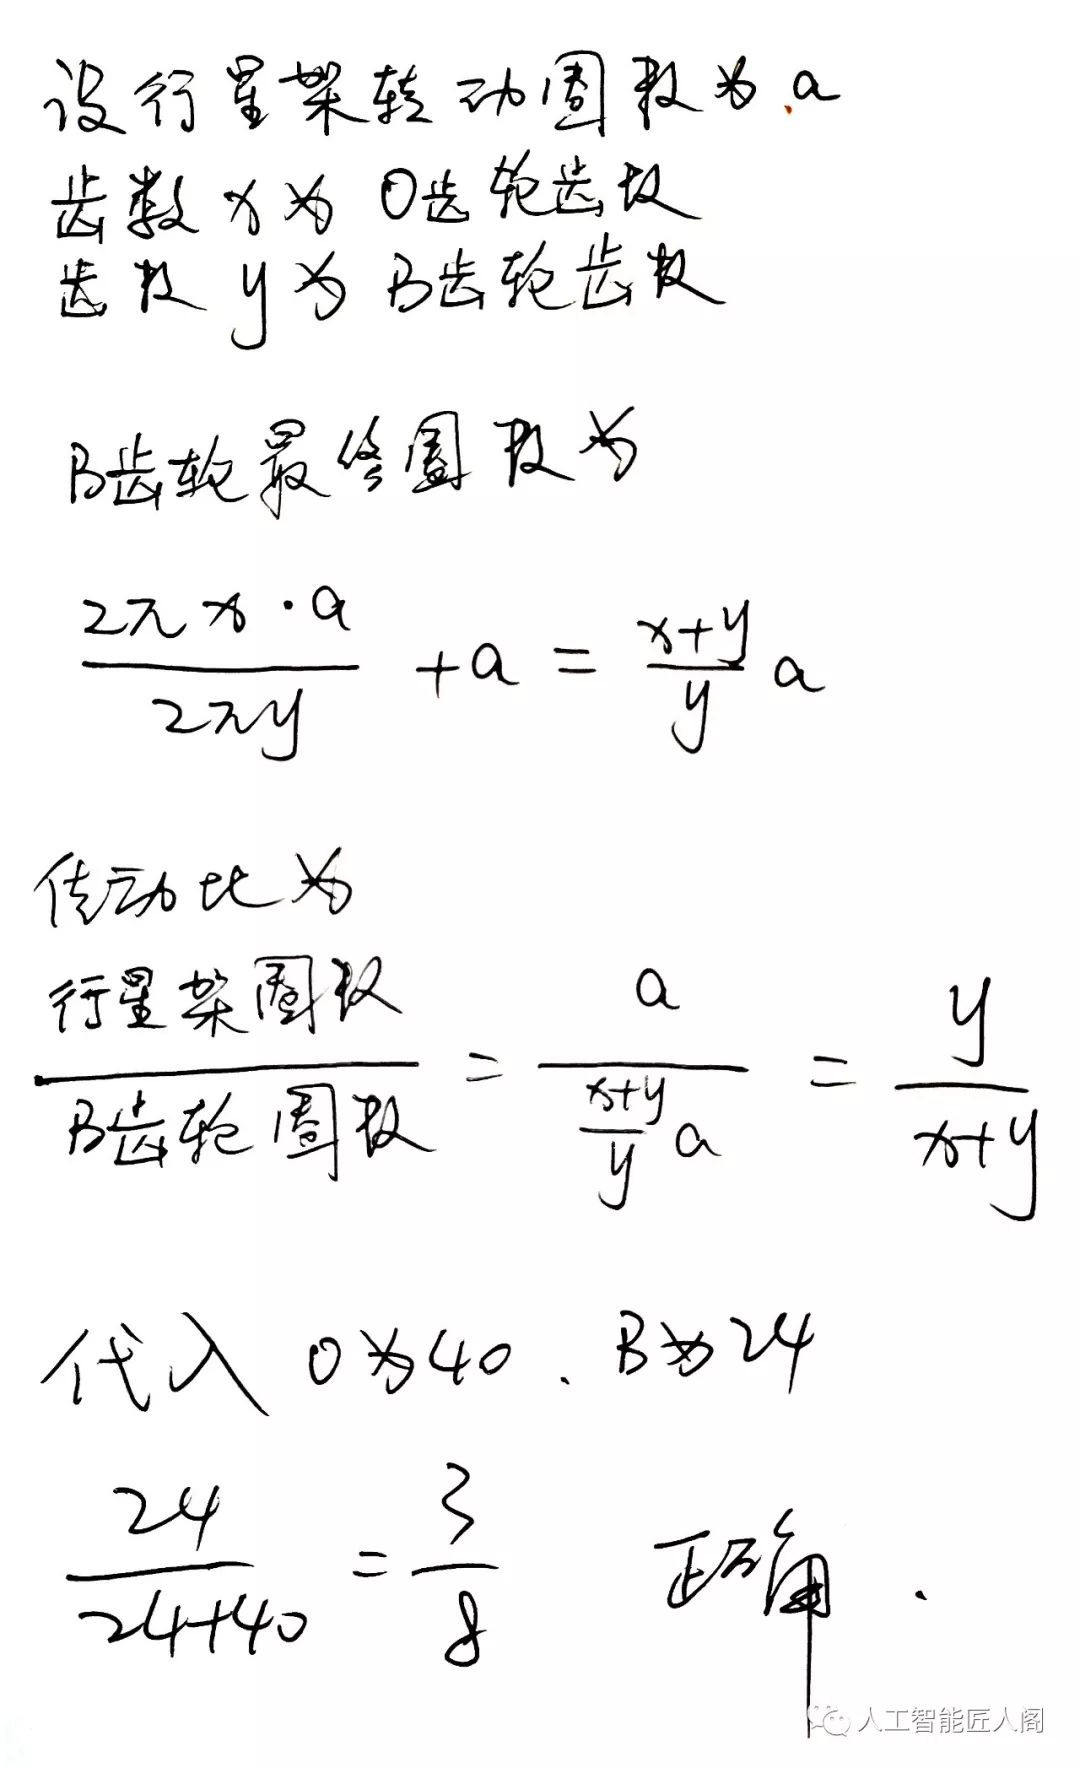 设行星架转动圈数为a
齿数x为O齿轮齿数
齿数y为B齿轮齿数
B齿轮最终圈数为
2πx·a / 2πy + a = x+y / y a
传动比为
行星架圈数 / B齿轮圈数 = a / (x+y / y a) = y / x+y
代入 O为40. B为24
24 / 24+40 = 3 / 8 正确.
人工智能匠人阁